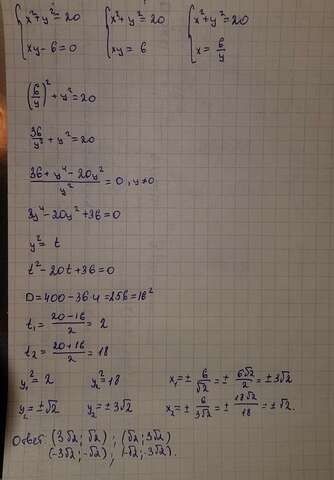 {x²+y²=20 {x²+y²=20 {x²+y²=20
{xy-6=0 {xy=6 {x=6/y
(6/y)²+y²=20
36/y²+y²=20
(36+y⁴-20y²)/y²=0, y≠0
y⁴-20y²+36=0
y²=t
t²-20t+36=0
D=400-36·4=256=16²
t₁=(20-16)/2=2
t₂=(20+16)/2=18
y₁²=2 y₂²=18 x₁=±6/√2=±6√2/2=±3√2
y₁=±√2 y₂=±3√2 x₂=±6/3√2=±18√2/18=±√2.
Ответ (3√2; √2); (√2; 3√2)
(-3√2; -√2); (-√2; -3√2).